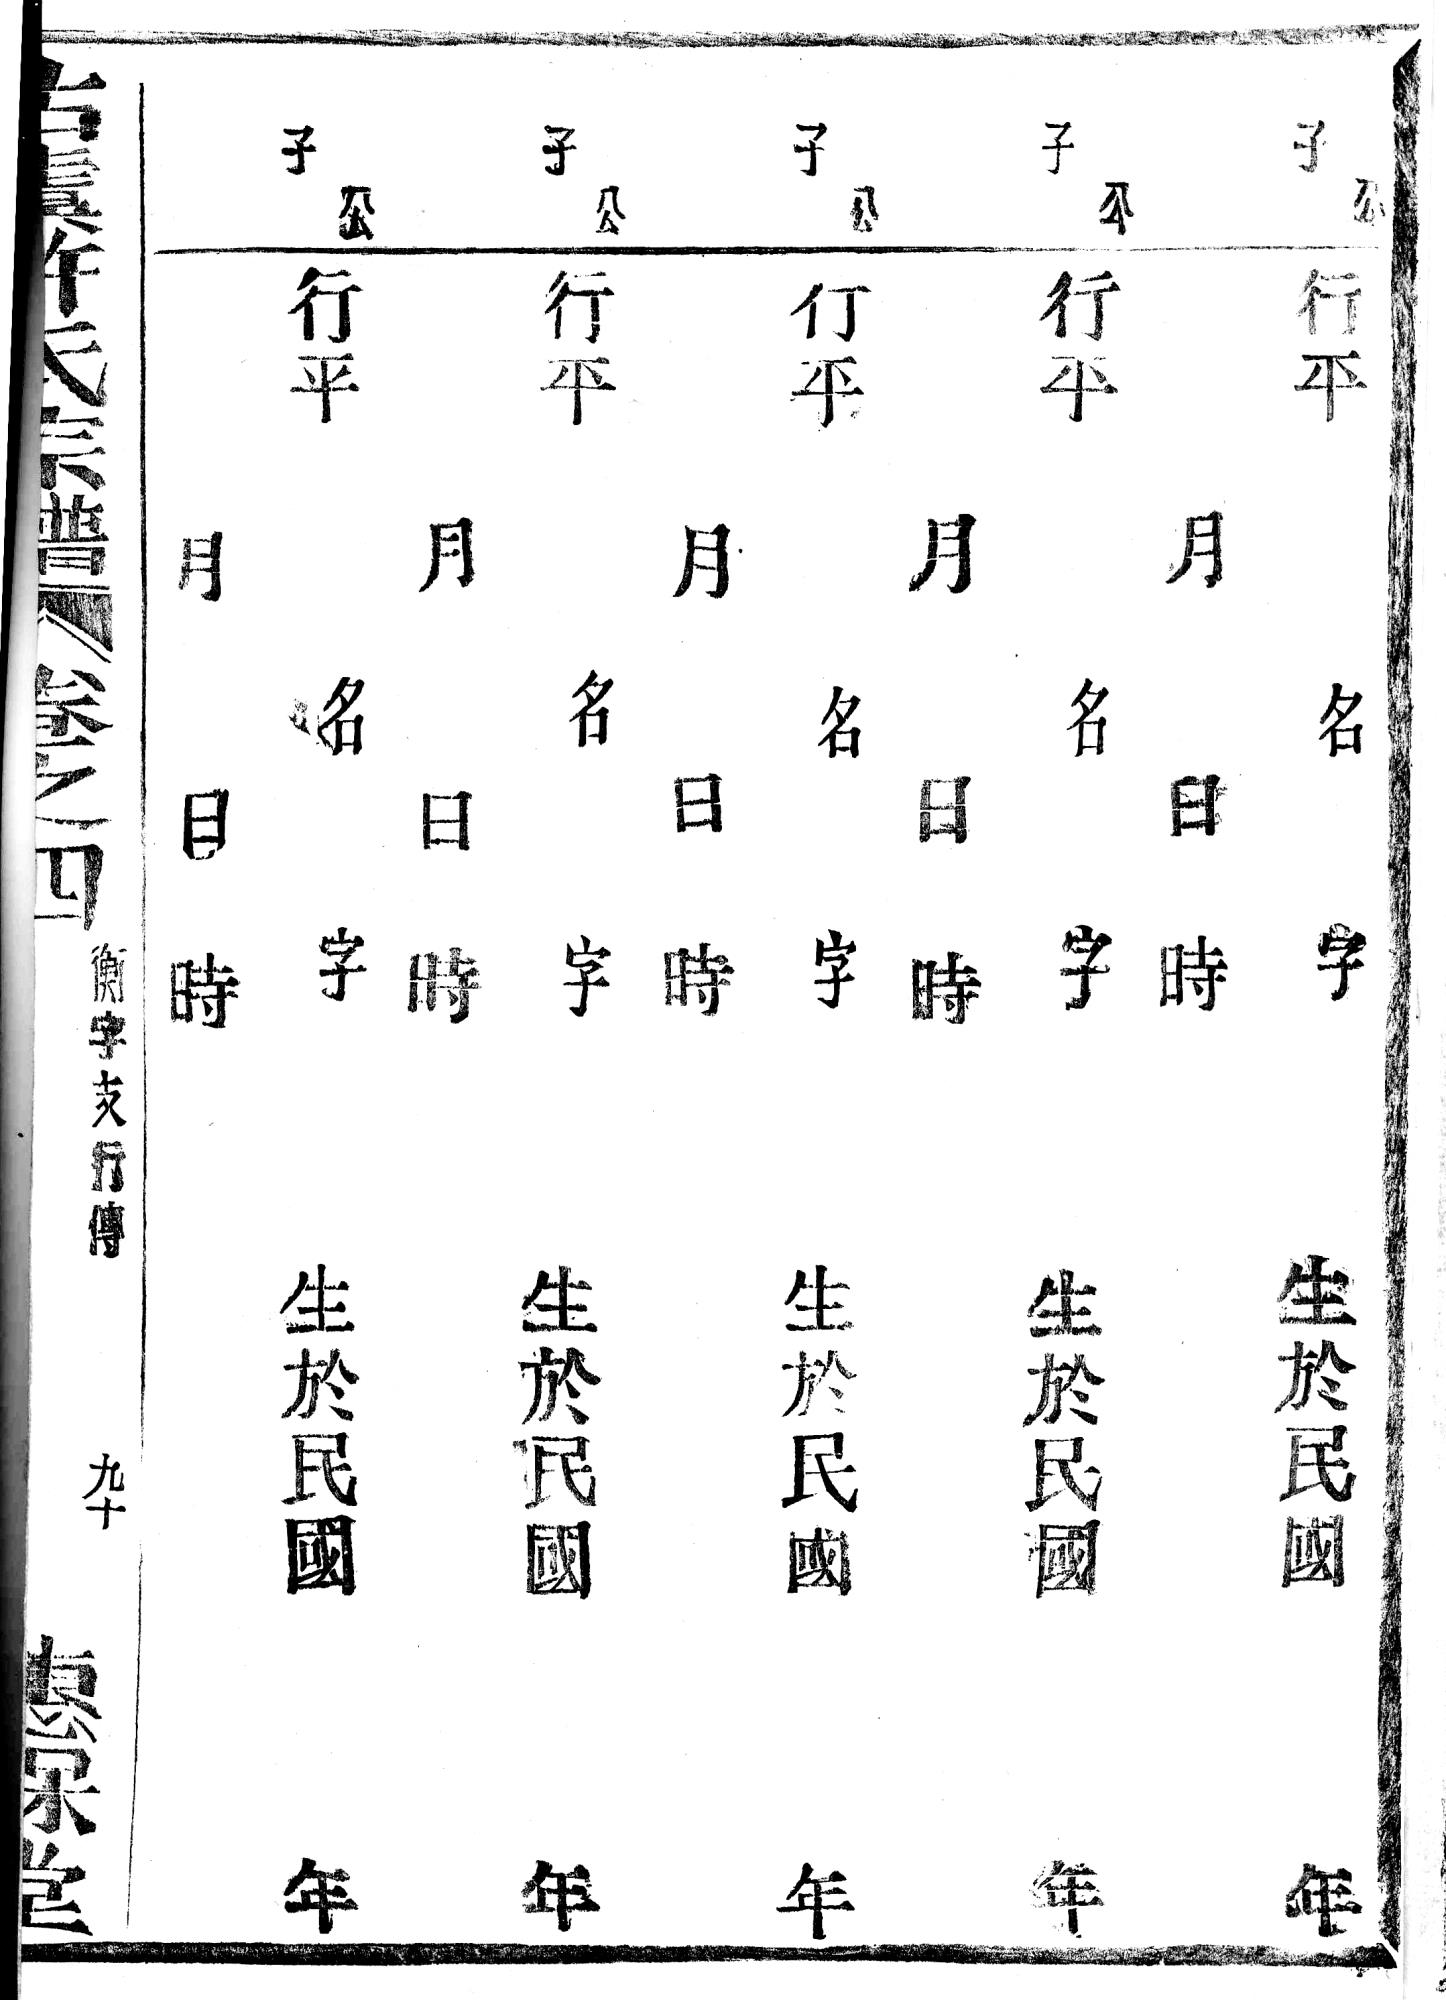 公
子
行平　名　字　生於民國　年
月　日　時
公
子
行平　名　字　生於民國　年
月　日　時
公
子
行平　名　字　生於民國　年
月　日　時
公
子
行平　名　字　生於民國　年
月　日　時
公
子
行平　名　字　生於民國　年
月　日　時
氏宗譜　卷之四　衡字支行傳　九十　堂